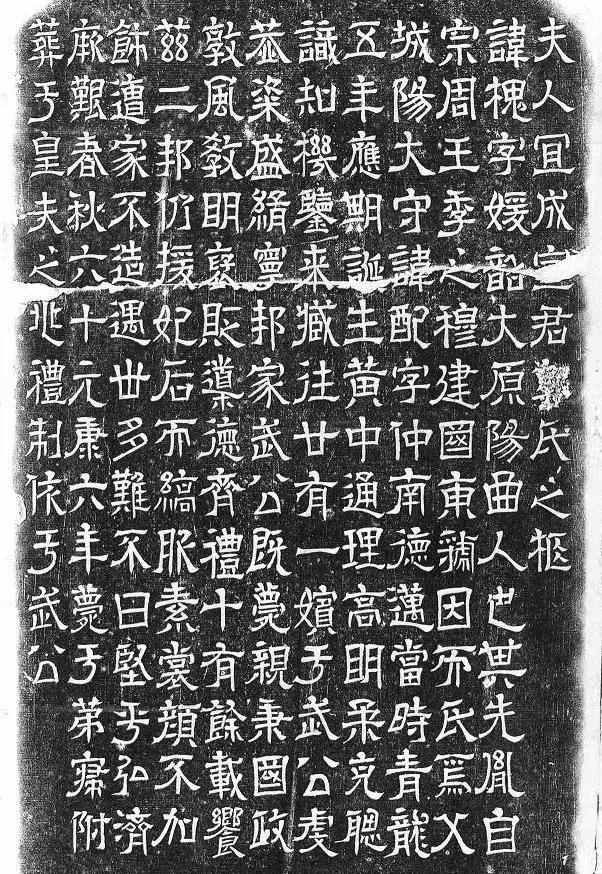 夫人冝成宣君郭氏之柩
諱槐字媛韶大原陽曲人也其先胤自
宗周王季之穆建國東虢因而氏焉父
城陽大守諱配字仲南德邁當時青龍
五年應期誕生黃中通理高明柔克聰
識知機鑒来臧往廿有一嬪于武公虔
恭粢盛緝寧邦家武公既薨親秉國政
敦風教明襃貶導德齊禮十有餘載饗
茲二邦仍援妃后而縞服素裳顏不加
飾遭家不造遇世多難不曰堅乎弘濟
厥艱春秋六十元康六年薨于第寢附
葬于皇夫之兆禮制依于武公